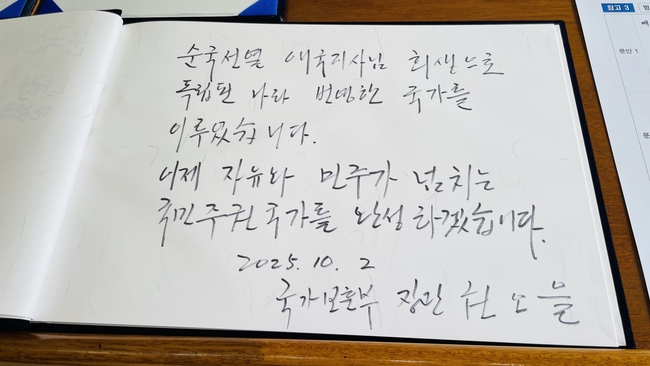 순국선열 애국지사님 희생으로
독립된 나라 번영한 국가를
이루었습니다.
이제 자유와 민주가 넘치는
국민주권국가를 완성하겠습니다.
2025. 10. 2
국가보훈부 장관 권오을
참고 3
문안 1